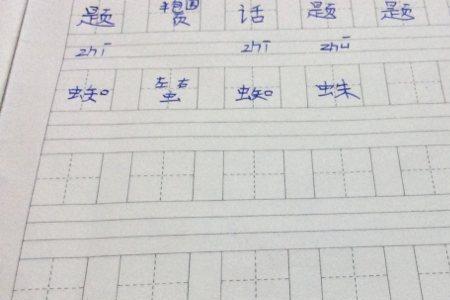 题 话 题 题
zhī zhī zhū
蜘 蜘 蛛